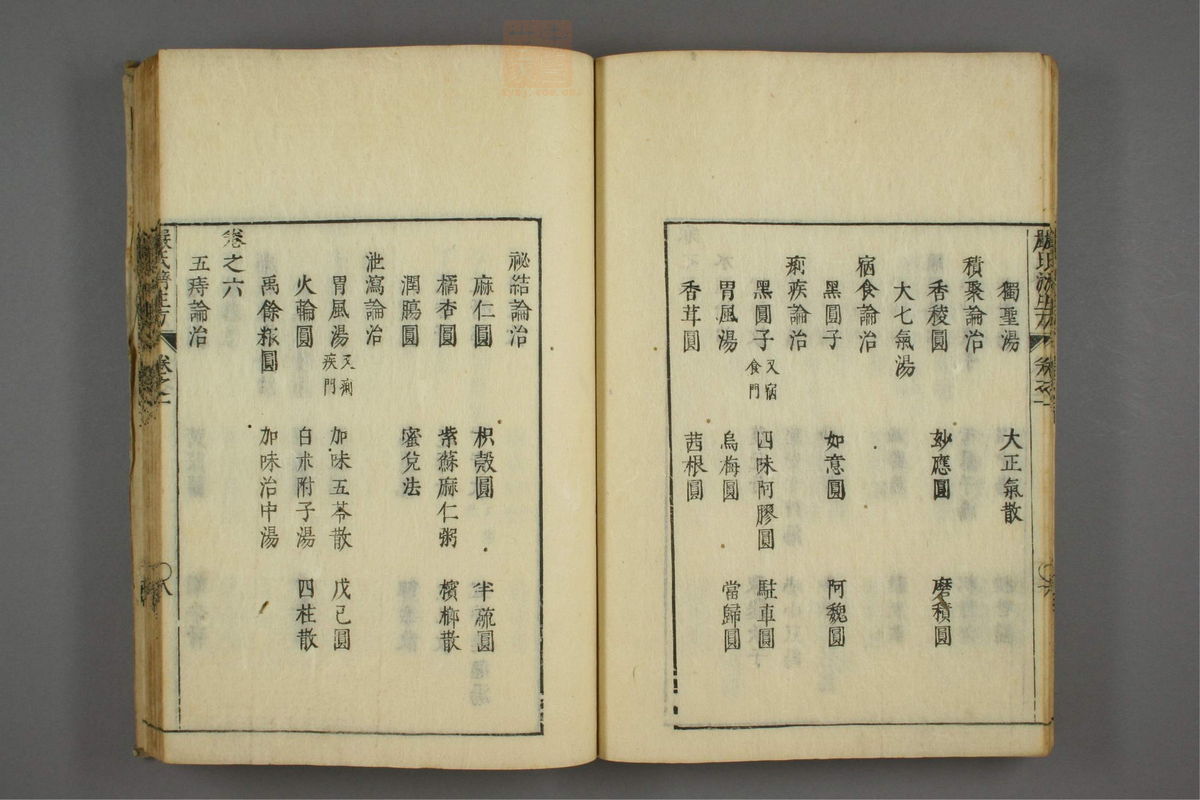 獨聖湯 大正氣散
積聚論治
香稜圓 妙應圓 磨積圓
大七氣湯
宿食論治
黑圓子 如意圓 阿魏圓
痢疾論治
黑圓子 又宿食門 四味阿膠圓 駐車圓
胃風湯 烏梅圓 當歸圓
香茸圓 茜根圓
祕結論治
麻仁圓 枳殼圓 半硫圓
橘杏圓 紫蘇麻仁粥 檳榔散
潤腸圓 蜜兌法
泄瀉論治
胃風湯 又痢疾門 加味五苓散 戊己圓
火輪圓 白朮附子湯 四柱散
禹餘粮圓 加味治中湯
卷之六
五痔論治
嚴氏濟生方 卷之一